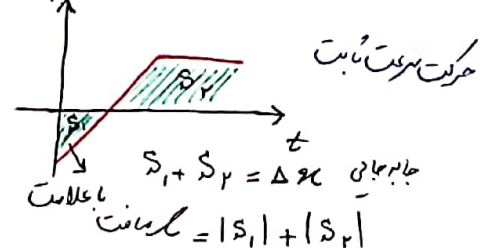 حرکت سرعت ثابت
S۱
S۲
t
S۱ + S۲ = Δx جابه‌جایی
با علامت
مسافت = |S۱| + |S۲|